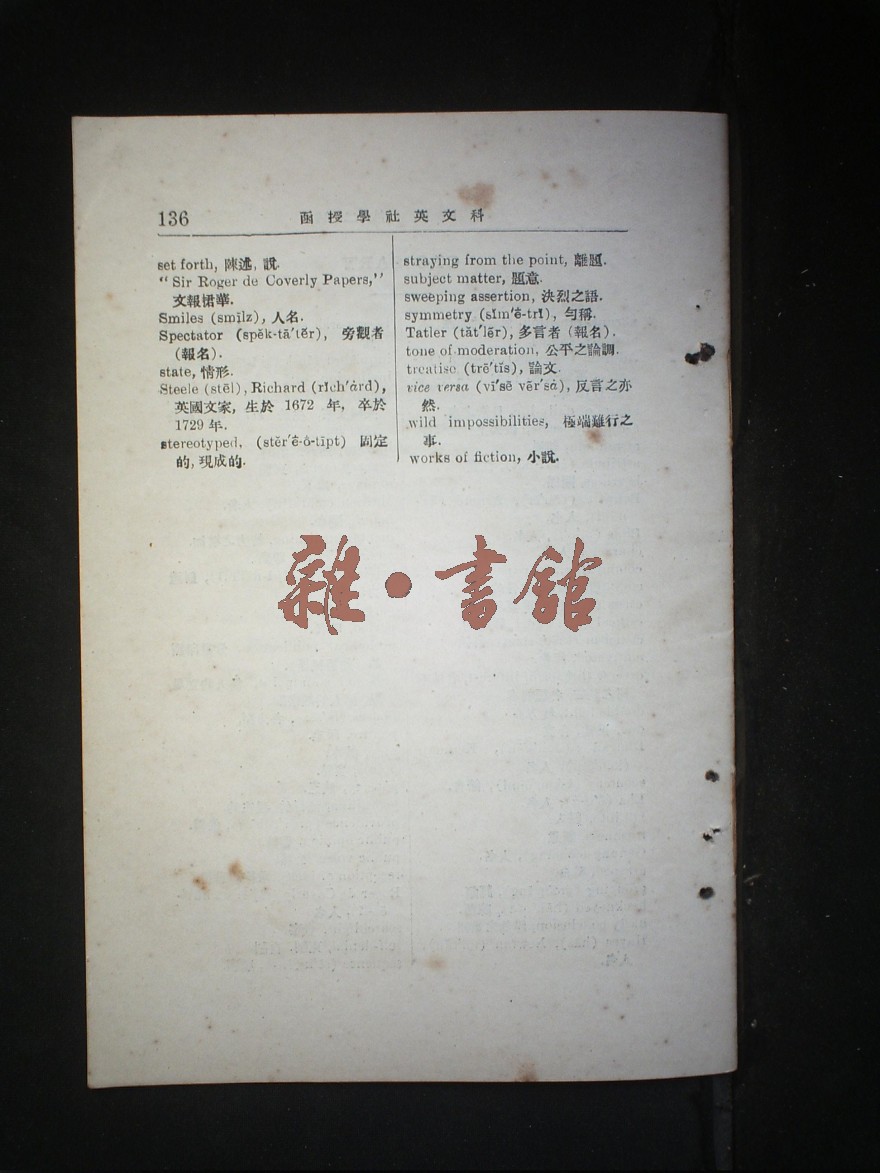 136
函授學社英文科
set forth, 陳述, 說.
"Sir Roger de Coverly Papers,"
文報捃華.
Smiles (smīlz), 人名.
Spectator (spĕk-tā′tẽr), 旁觀者
(報名).
state, 情形.
Steele (stēl), Richard (rĭch′ȧrd),
英國文家, 生於 1672 年, 卒於
1729 年.
stereotyped, (stĕr′ē̇-ō̇-tīpt) 固定
的, 現成的.
straying from the point, 離題.
subject matter, 題意.
sweeping assertion, 決烈之語.
symmetry (sĭm′ē̇-trĭ), 勻稱.
Tatler (tăt′lẽr), 多言者 (報名).
tone of moderation, 公平之論調.
treatise (trē′tĭs), 論文.
vice versa (vī′sē vẽr′sȧ), 反言之亦
然.
wild impossibilities, 極端難行之
事.
works of fiction, 小說.
雜·書館